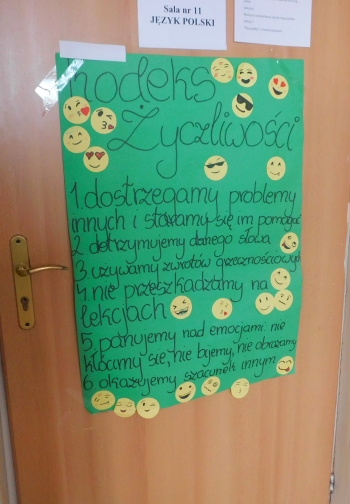 Sala nr 11
JĘZYK POLSKI
Kodeks
Życzliwości
1. dostrzegamy problemy
innych i staramy się im pomagać
2. dotrzymujemy danego słowa
3. używamy zwrotów grzecznościowych
4. nie przeszkadzamy na
lekcjach
5. panujemy nad emocjami: nie
kłócimy się, nie bijemy, nie obrażamy
6. okazujemy szacunek innym